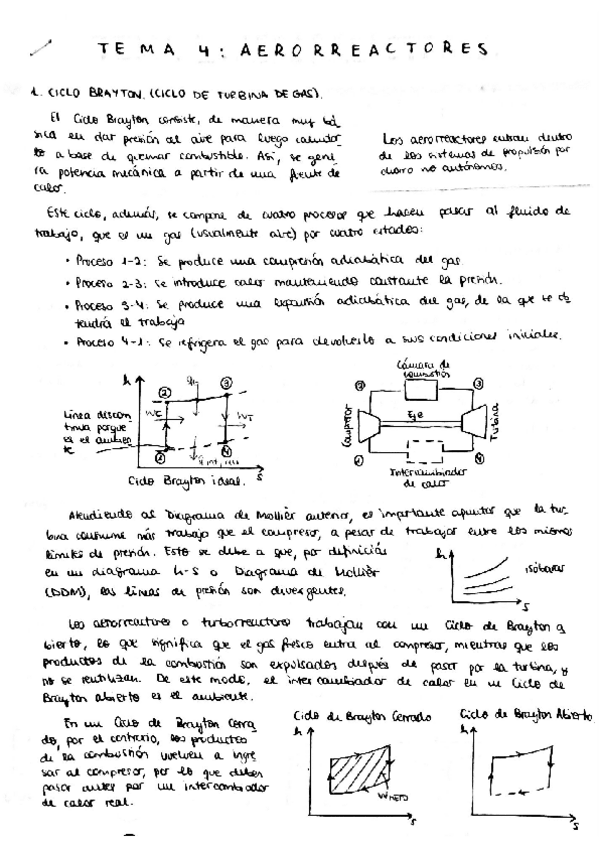 TEMA 4: AERORREACTORES
1. CICLO BRAYTON. (CICLO DE TURBINA DE GAS).
El Ciclo Brayton consiste, de manera muy bá-
sica en dar presión al aire para luego calentar-
lo a base de quemar combustible. Así, se gene-
ra potencia mecánica a partir de una fuente de
calor.
Los aerorreactores entran dentro
de los sistemas de propulsión por
chorro no autónomos.
Este ciclo, además, se compone de cuatro procesos que hacen pasar al fluido de
trabajo, que es un gas (usualmente aire) por cuatro estados:
• Proceso 1-2: Se produce una compresión adiabática del gas.
• Proceso 2-3: se introduce calor manteniendo constante la presión.
• Proceso 3-4: Se produce una expansión adiabática del gas, de la que se ob
tendrá el trabajo
• Proceso 4-1: Se refrigera el gas para devolverlo a sus condiciones iniciales.
h
2
3
Wc
WT
1
4
s
Línea discon-
tinua porque
es el ambien-
te
Ciclo Brayton ideal.
Cámara de
combustión
2
3
Compresor
Eje
Turbina
1
4
Intercambiador
de calor
Atendiendo al Diagrama de Mollier anterior, es importante apuntar que la tur-
bina consume más trabajo que el compresor, a pesar de trabajar entre los mismos
límites de presión. Esto se debe a que, por definición
en un diagrama h-s o Diagrama de Mollier
(DDM), las líneas de presión son divergentes.
h
isóbaras
s
Los aerorreactores o turborreactores trabajan con un Ciclo de Brayton a
bierto, lo que significa que el gas fresco entra al compresor, mientras que los
productos de la combustión son expulsados después de pasar por la turbina, y
no se reutilizan. De este modo, el intercambiador de calor en un Ciclo de
Brayton abierto es el ambiente.
En un Ciclo de Brayton cerra-
do, por el contrario, los productos
de la combustión vuelven a ingre
sar al compresor, por lo que deben
pasar antes por un intercambiador
de calor real.
Ciclo de Brayton Cerrado
h
WNETO
s
Ciclo de Brayton Abierto
h
s